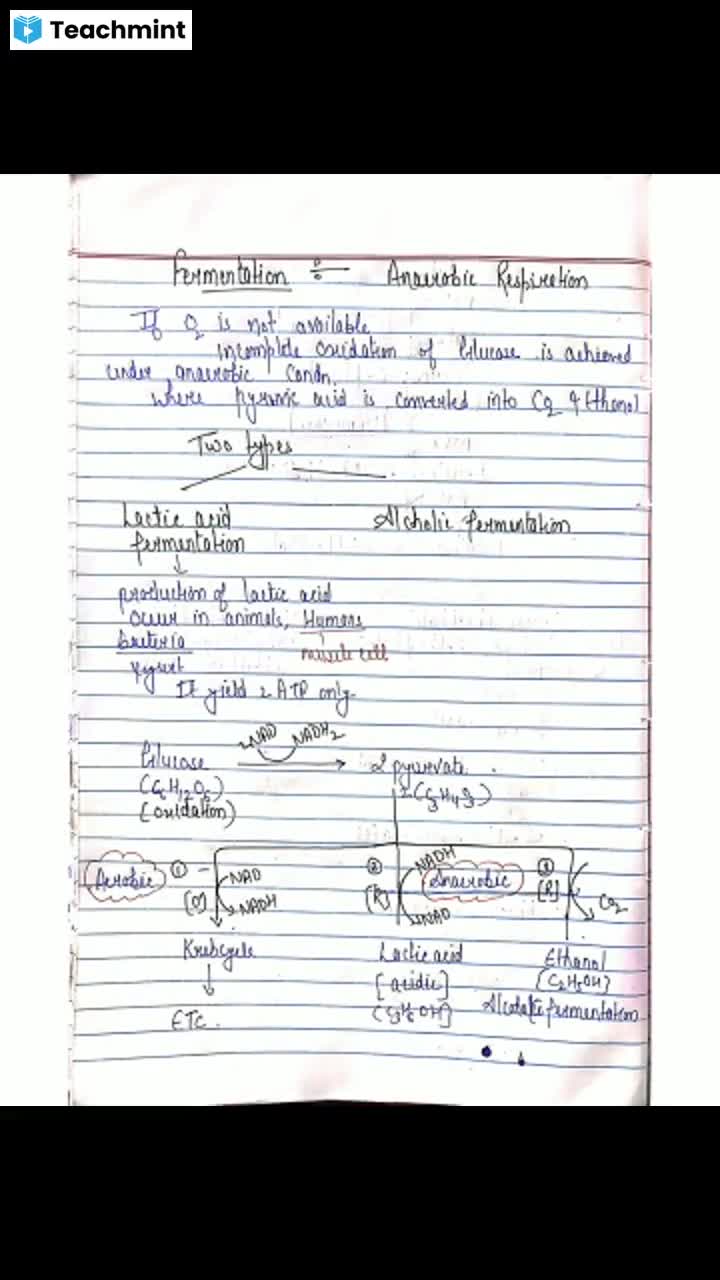 Teachmint
Fermentation ÷ Anaerobic Respiration
If O2 is not available
incomplete oxidation of Glucose is achieved
under anaerobic Condn.
where pyruvic acid is converted into CO2 & Ethanol
Two types
Lactic acid
fermentation
Alcholic fermentation
production of lactic acid
occur in animals, Humans
muscle cell
It yield 2 ATP only
Glucose 2NAD NADH2 2 pyurvate
(C6H12O6)
(oxidation)
Aerobic ① NAD
[O] NADH
② NADH
[R] NAD
Anaerobic ③
[R] CO2
Krebcycle
ETC.
Lactic acid
[acidic]
Ethanol
(C2H5OH)
fermentation